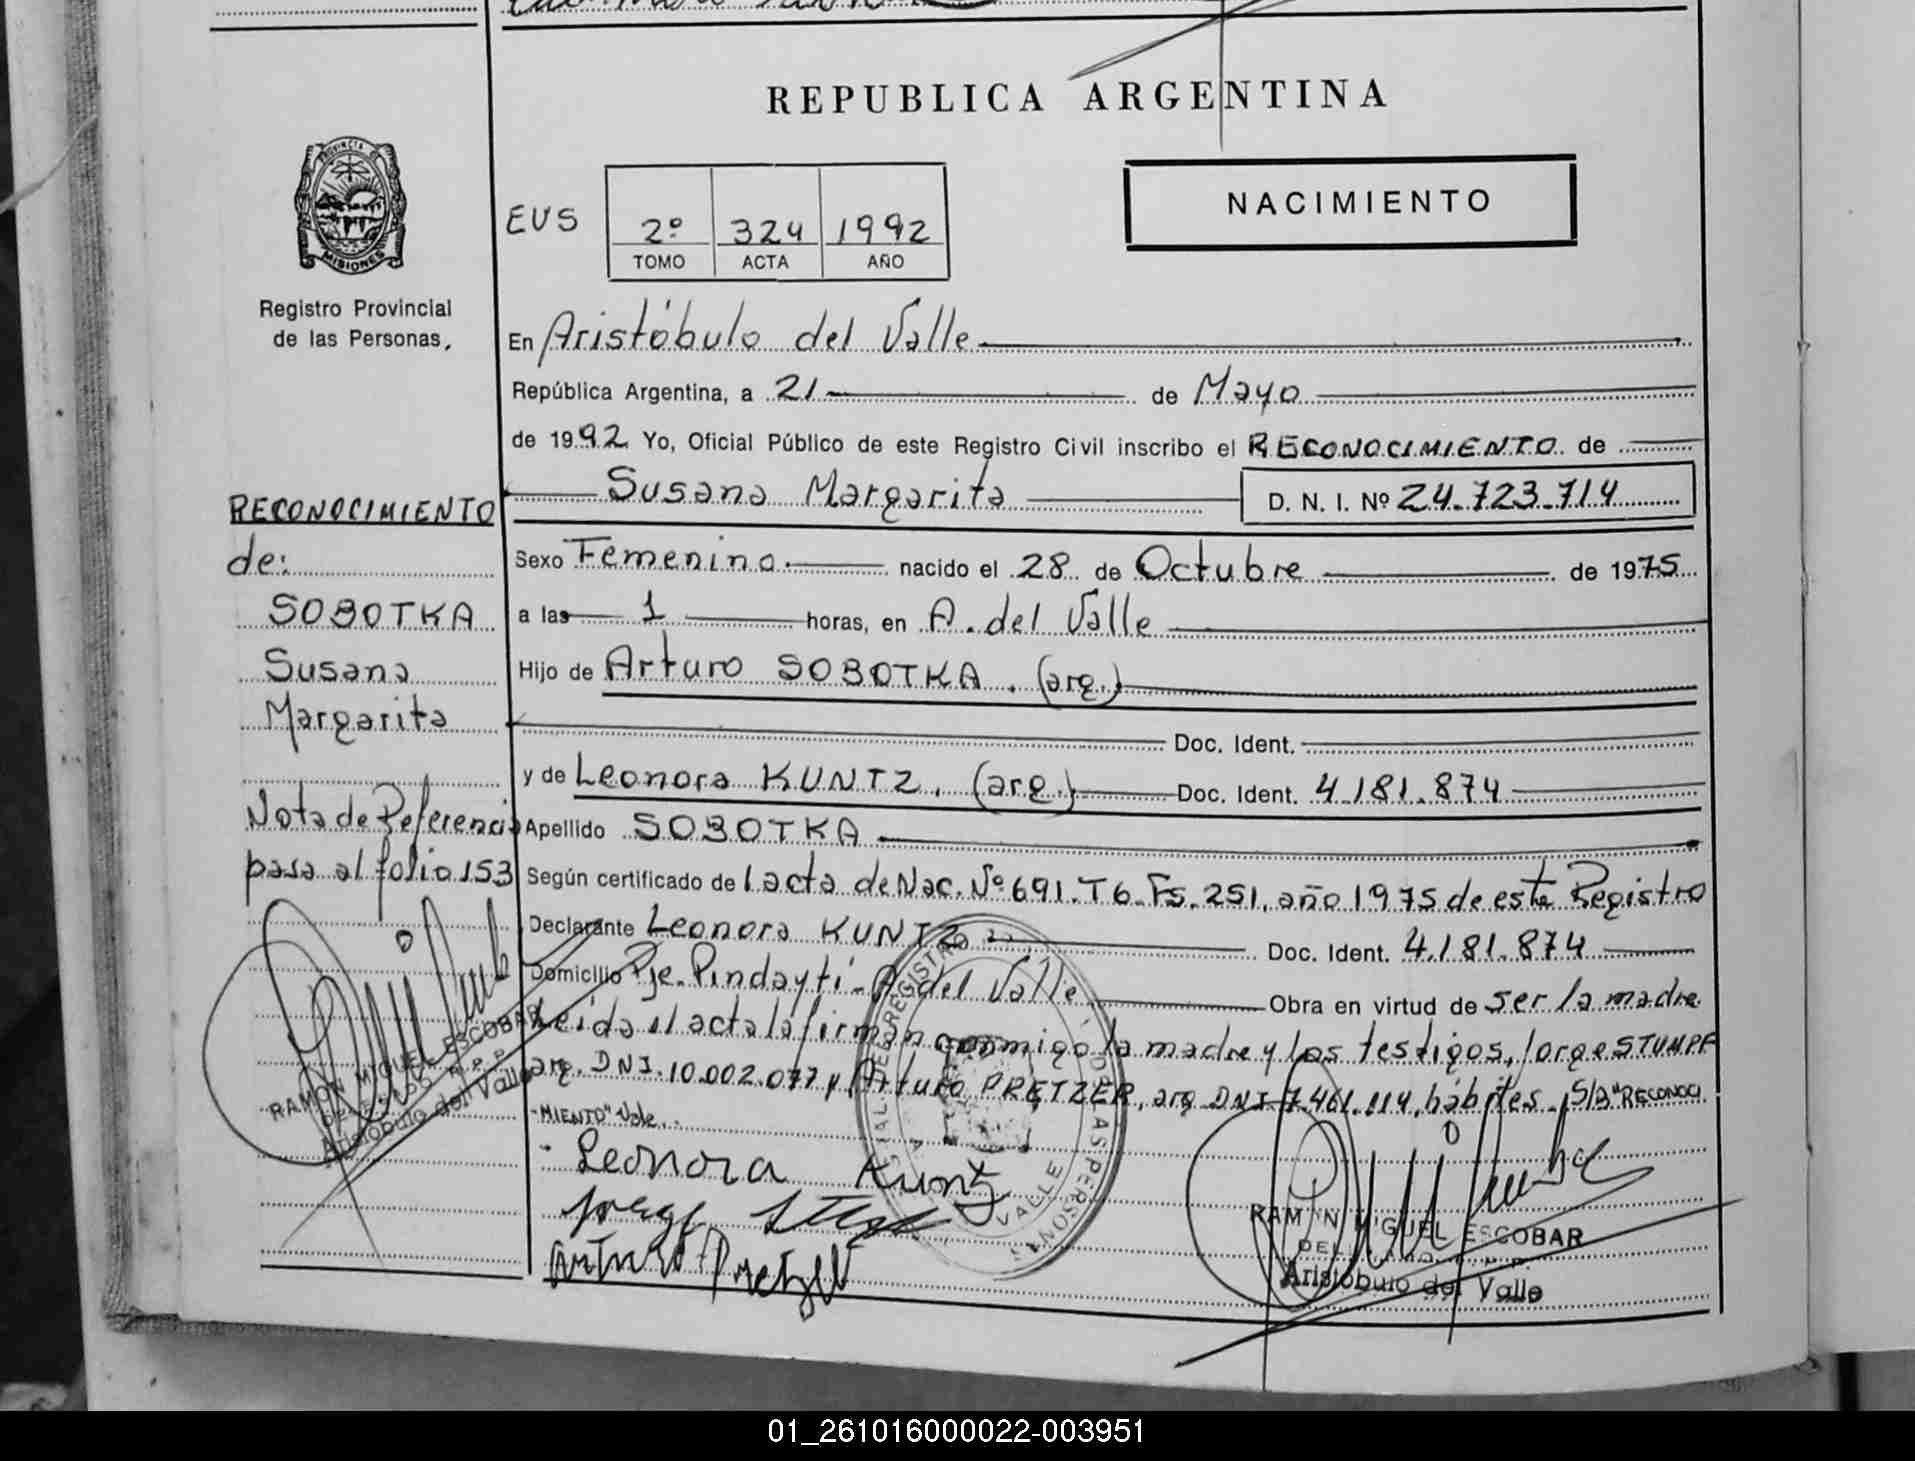 REPUBLICA ARGENTINA
PROVINCIA DE
MISIONES
Registro Provincial
de las Personas,
NACIMIENTO
EUS
2º 324 1992
TOMO ACTA AÑO
En Aristóbulo del Valle
República Argentina, a 21 de Mayo
de 1992 Yo, Oficial Público de este Registro Civil inscribo el RECONOCIMIENTO de
Susana Margarita D. N. I. Nº 24.723.714
Sexo Femenino nacido el 28 de Octubre de 1975
a las 1 horas, en A. del Valle
Hijo de Arturo SOBOTKA. (arg.)
Doc. Ident.
y de Leonora KUNTZ. (arg.) Doc. Ident. 4.181.874
Apellido SOBOTKA
Según certificado de lacta de Nac. Nº 691. T6. Fs. 251, año 1975 de este Registro
Declarante Leonora KUNTZ Doc. Ident. 4.181.874
Domicilio Pje. Pindaytí - A. del Valle Obra en virtud de ser la madre
Leída el acta la firman conmigo la madre y los testigos, Jorge STUMPF
arg. DNI. 10.002.077 y Arturo PRETZER, arg DNI 7.461.114, hábiles. S/B "RECONOCI
-MIENTO" Vale.
Leonora Kuntz
Jorge
Arturo Pretzer
RAMON MIGUEL ESCOBAR
Aristóbulo del Valle
RECONOCIMIENTO
de:
SOBOTKA
Susana
Margarita
Nota de Referencia
pasa al folio 153
RAMON MIGUEL ESCOBAR
Aristóbulo del Valle
01_261016000022-003951